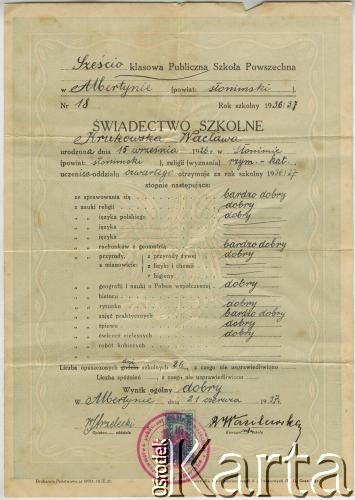 Sześcio klasowa Publiczna Szkoła Powszechna
w Albertynie (powiat: słonimski ).
Nr 18 Rok szkolny 1936/37
ŚWIADECTWO SZKOLNE
Krukowska Wacława
urodzona dnia 15 września 1926 r. w Słonimie
(powiat: słonimski ), religii (wyznania) rzym.-kat.
uczenica oddziału czwartego otrzymuje za rok szkolny 1936/37
stopnie następujące:
ze sprawowania się bardzo dobry
z nauki religii dobry
" " języka polskiego dobry
" " języka
" " języka
" " rachunków z geometrią bardzo dobry
" " przyrody, z przyrody żywej dobry
a mianowicie: z fizyki i chemii
z higieny
" " geografii i nauki o Polsce współczesnej dobry
" " historii
" " rysunku dobry
" " zajęć praktycznych bardzo dobry
" " śpiewu dobry
" " ćwiczeń cielesnych dobry
" " robót kobiecych
Liczba opuszczonych dni godzin szkolnych 26, z czego nie usprawiedliwiono
Liczba spóźnień, z czego nie usprawiedliwiono
Wynik ogólny dobry
W Albertynie dnia 21 czerwca 1937.
ośrodek
Karta